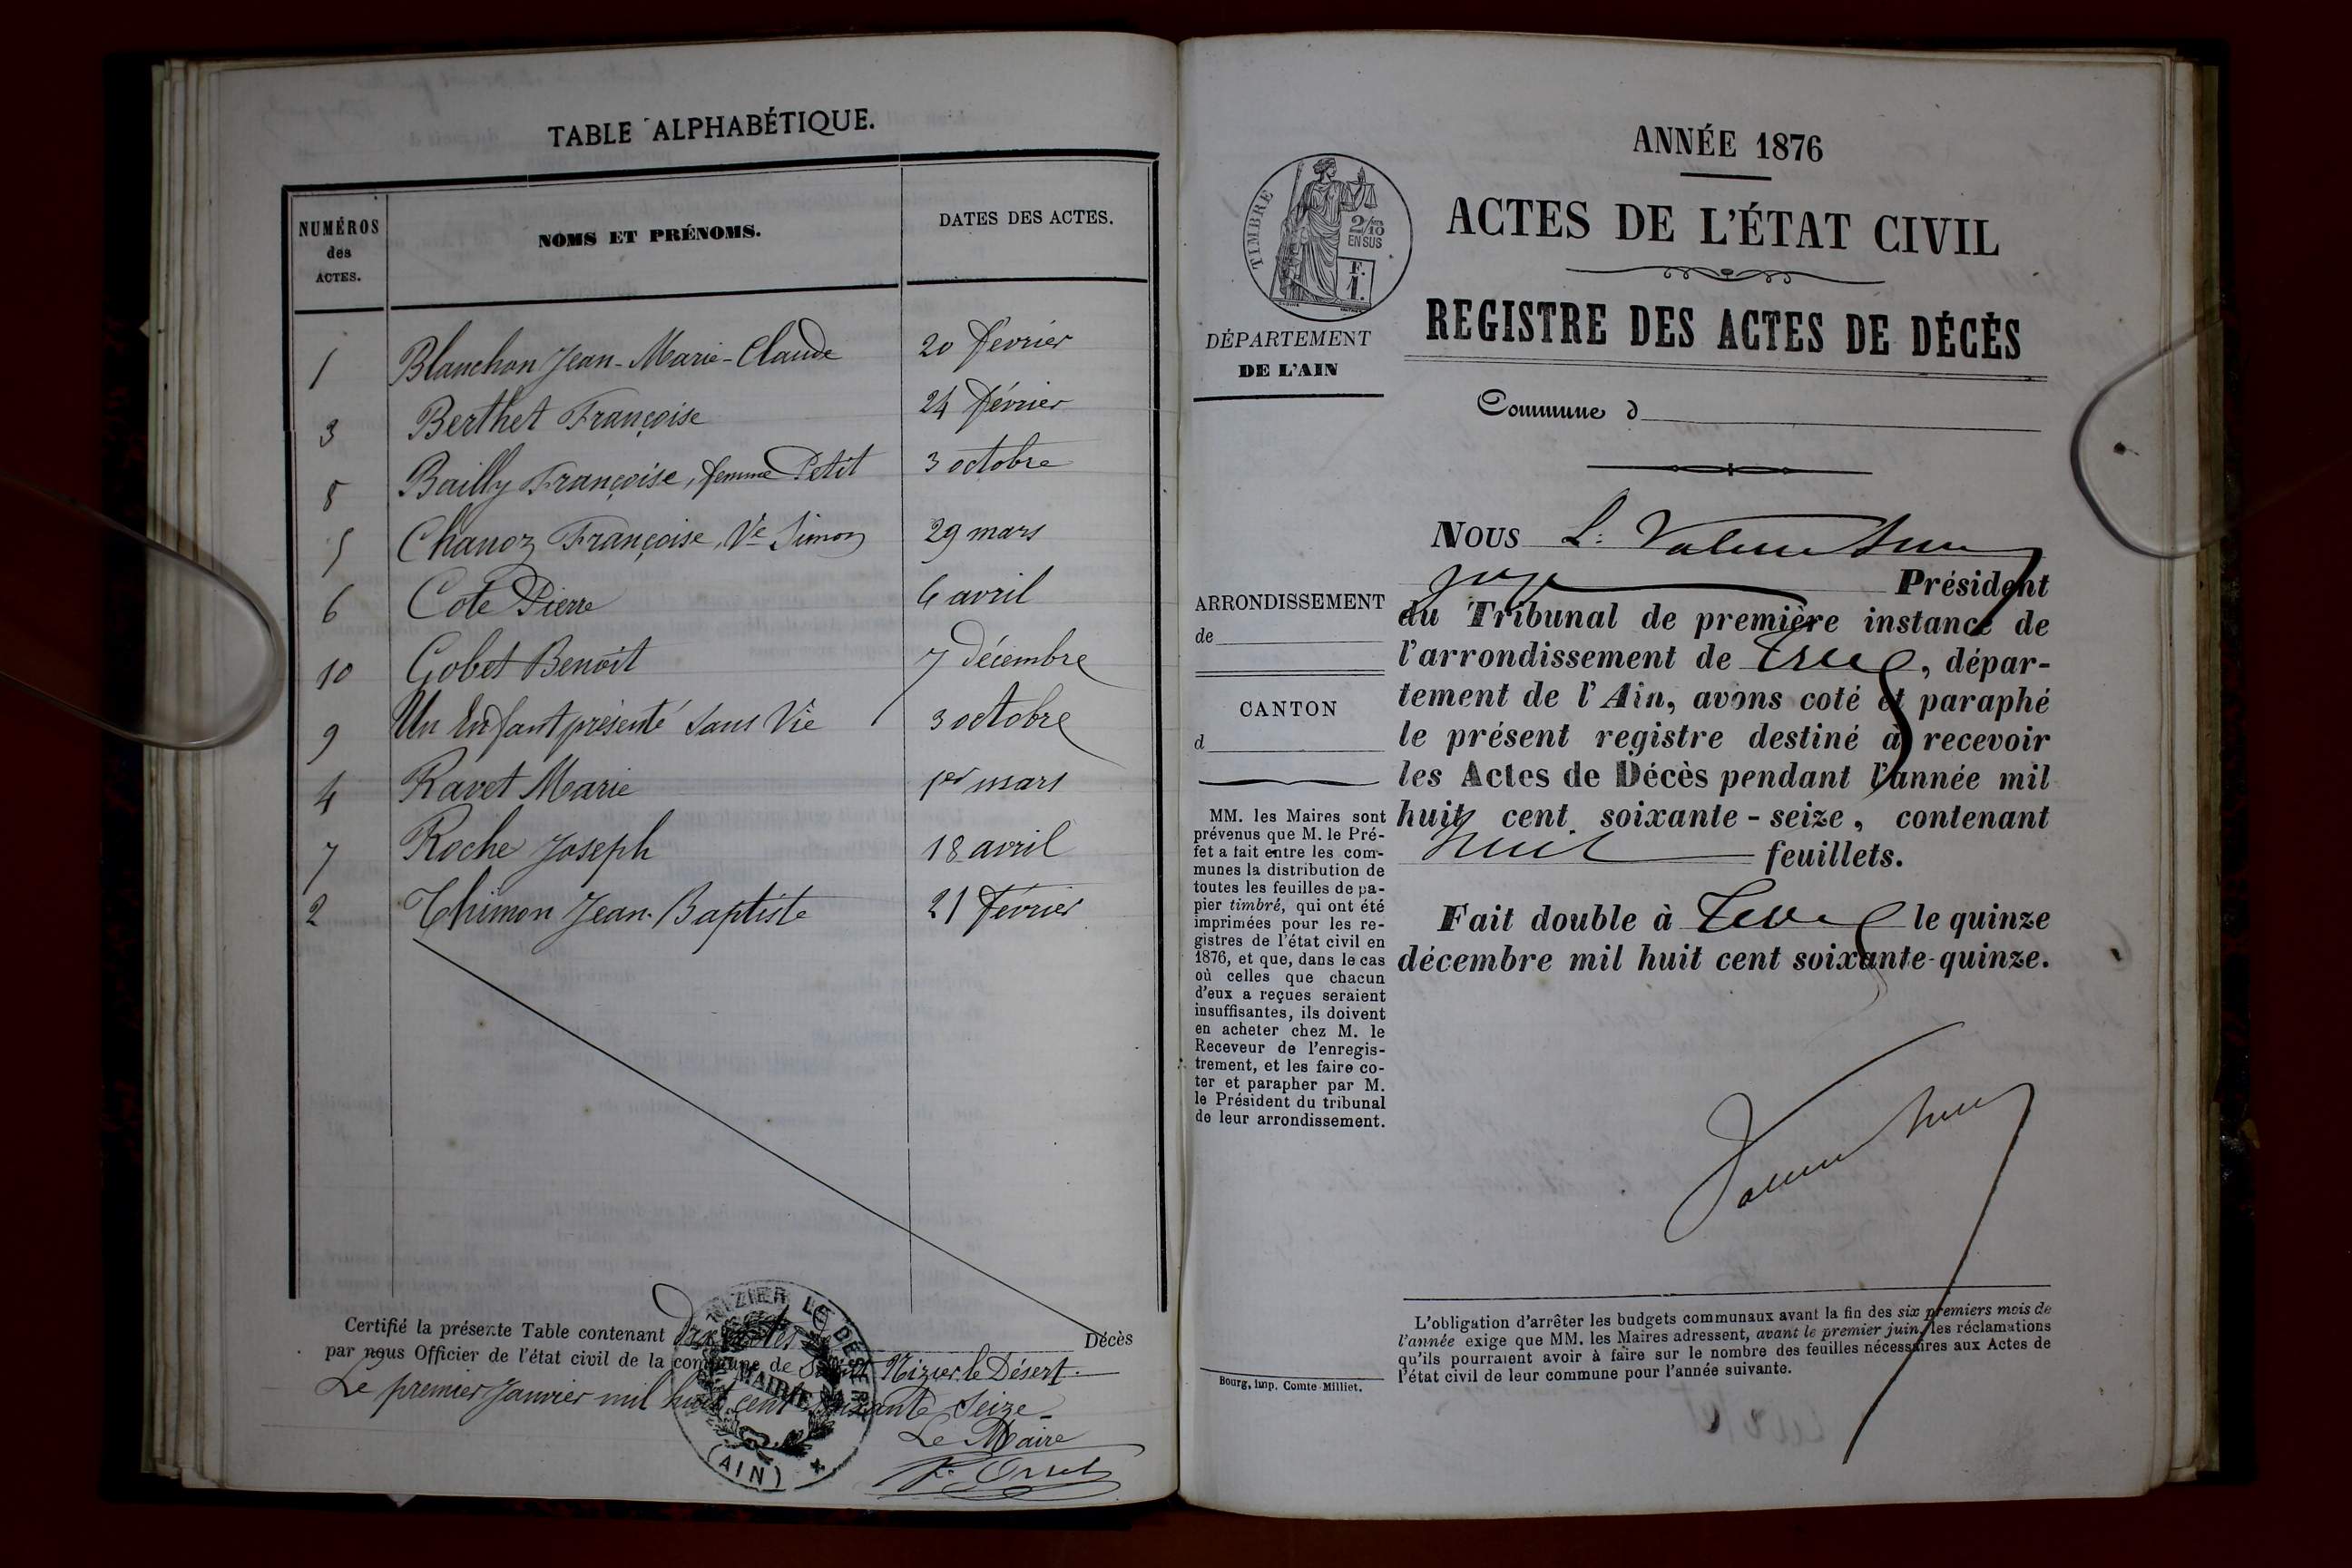 TABLE ALPHABÉTIQUE.
NUMÉROS des ACTES. NOMS ET PRÉNOMS. DATES DES ACTES.
1 Blanchon Jean-Marie-Claude 20 février
3 Berthet Françoise 24 février
8 Bailly Françoise, femme Petit 3 octobre
5 Chanoz Françoise, Ve Simon 29 mars
6 Cote Pierre 6 avril
10 Gobet Benoît 7 décembre
9 Un Enfant présenté Sans Vie 3 octobre
4 Ravet Marie 1er mars
7 Roche Joseph 18 avril
2 Thimon Jean-Baptiste 21 février
Certifié la présente Table contenant Dix actes Décès
par nous Officier de l'état civil de la commune de Saint Nizier le Désert.
Le premier Janvier mil huit cent soixante Seize
Le Maire
NIZIER LE DÉSERT
MAIRIE
(AIN)
ANNÉE 1876
ACTES DE L'ÉTAT CIVIL
REGISTRE DES ACTES DE DÉCÈS
TIMBRE
2/10
EN SUS
F.
1.
DÉPARTEMENT
DE L'AIN
Commune d
ARRONDISSEMENT
de
CANTON
d
MM. les Maires sont
prévenus que M. le Pré-
fet a fait entre les com-
munes la distribution de
toutes les feuilles de pa-
pier timbré, qui ont été
imprimées pour les re-
gistres de l'état civil en
1876, et que, dans le cas
où celles que chacun
d'eux a reçues seraient
insuffisantes, ils doivent
en acheter chez M. le
Receveur de l'enregis-
trement, et les faire co-
ter et parapher par M.
le Président du tribunal
de leur arrondissement.
Bourg, imp. Comte-Milliet.
NOUS L.
juge Président
du Tribunal de première instance de
l'arrondissement de , dépar-
tement de l'Ain, avons coté et paraphé
le présent registre destiné à recevoir
les Actes de Décès pendant l'année mil
huit cent soixante-seize, contenant
huit feuillets.
Fait double à le quinze
décembre mil huit cent soixante-quinze.
L'obligation d'arrêter les budgets communaux avant la fin des six premiers mois de
l'année exige que MM. les Maires adressent, avant le premier juin, les réclamations
qu'ils pourraient avoir à faire sur le nombre des feuilles nécessaires aux Actes de
l'état civil de leur commune pour l'année suivante.